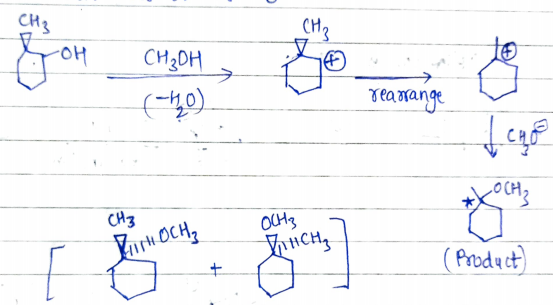 CH3
OH
CH3OH
(-H2O)
CH3
⊕
rearrange
⊕
CH3O⊖
* OCH3
(Product)
[ CH3
OCH3
+
OCH3
CH3 ]